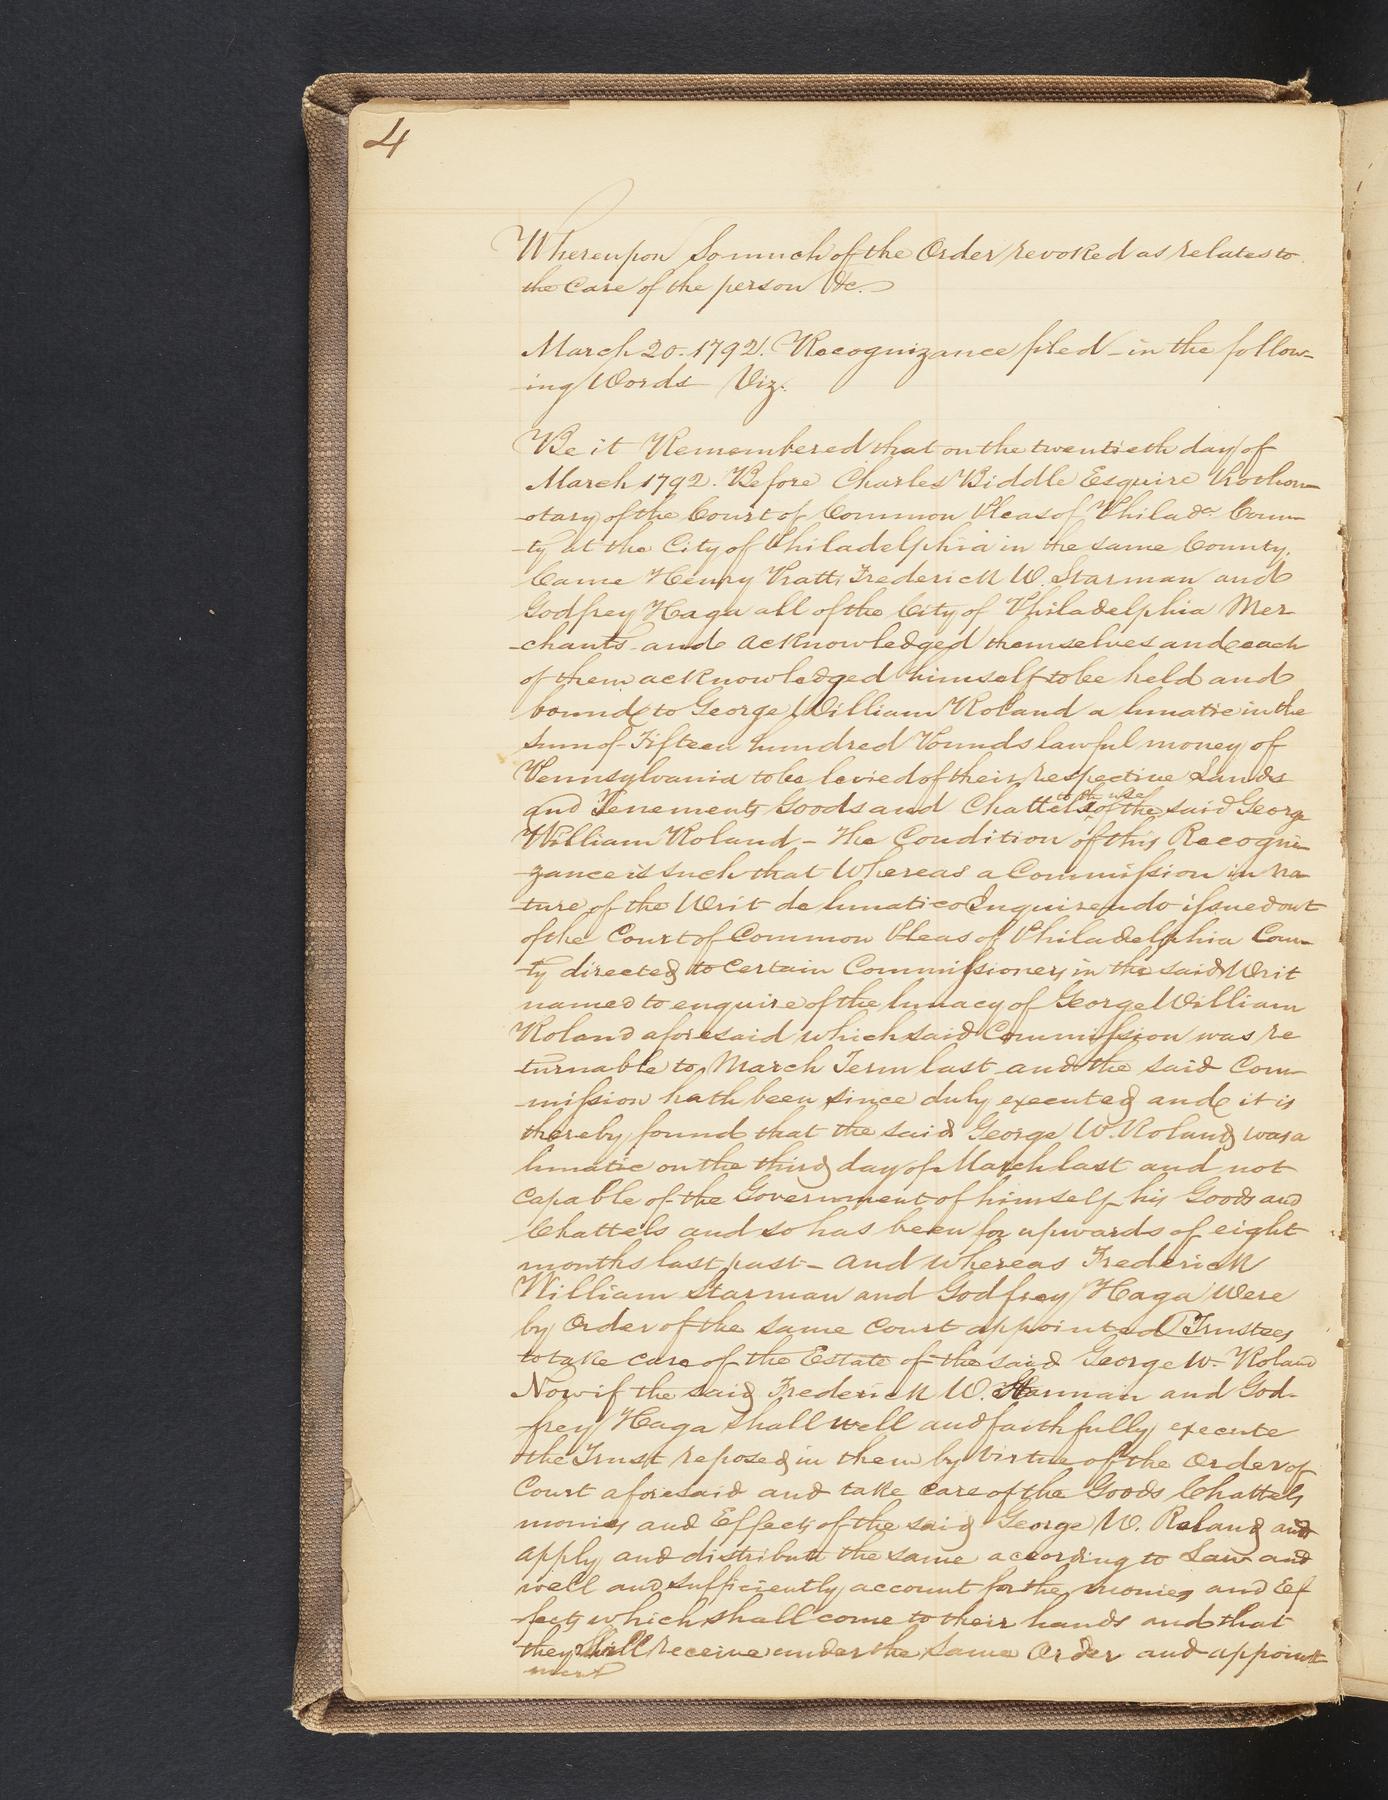 4
Whereupon so much of the Order revoked as relates to
the Care of the person &c.
March 20. 1792. Recognizance filed in the follow-
ing Words Viz.
Be it Remembered that on the twentieth day of
March 1792. Before Charles Biddle Esquire Prothon-
otary of the Court of Common Pleas of Philada Coun-
ty at the City of Philadelphia in the same County.
Came Henry Pratt, Frederick W. Starman and
Godfrey Haga all of the City of Philadelphia Mer
chants and acknowledged themselves and each
of them acknowledged himself to be held and
bound to George William Roland a lunatic in the
Sum of Fifteen hundred Pounds lawful money of
Pennsylvania to be levied of their respective Lands
and Tenements Goods and Chattels to the use of the said George
William Roland - The Condition of this Recogni-
zance is such that Whereas a Commission in na-
ture of the Writ de lunatico Inquirendo issued out
of the Court of Common Pleas of Philadelphia Coun-
ty directed to Certain Commissioners in the said Writ
named to enquire of the lunacy of George William
Roland aforesaid which said Commission was re
turnable to March Term last and the said Com-
mission hath been since duly executed and it is
thereby found that the said George W. Roland was a
lunatic on the third day of March last and not
capable of the Government of himself his Goods and
Chattels and so has been for upwards of eight
months last past - and whereas Frederick
William Starman and Godfrey Haga Were
by Order of the same Court appointed Trustees
to take care of the Estate of the said George W. Roland
Now if the said Frederick W. Starman and God-
frey Haga shall well and faithfully execute
the Trust reposed in them by Virtue of the Order of
Court aforesaid and take care of the Goods Chattels
monies and Effects of the said George W. Roland and
apply and distribute the same according to Law and
well and sufficiently account for the monies and Ef
fects which shall come to their hands and that
they shall receive under the same Order and appoint-
ment